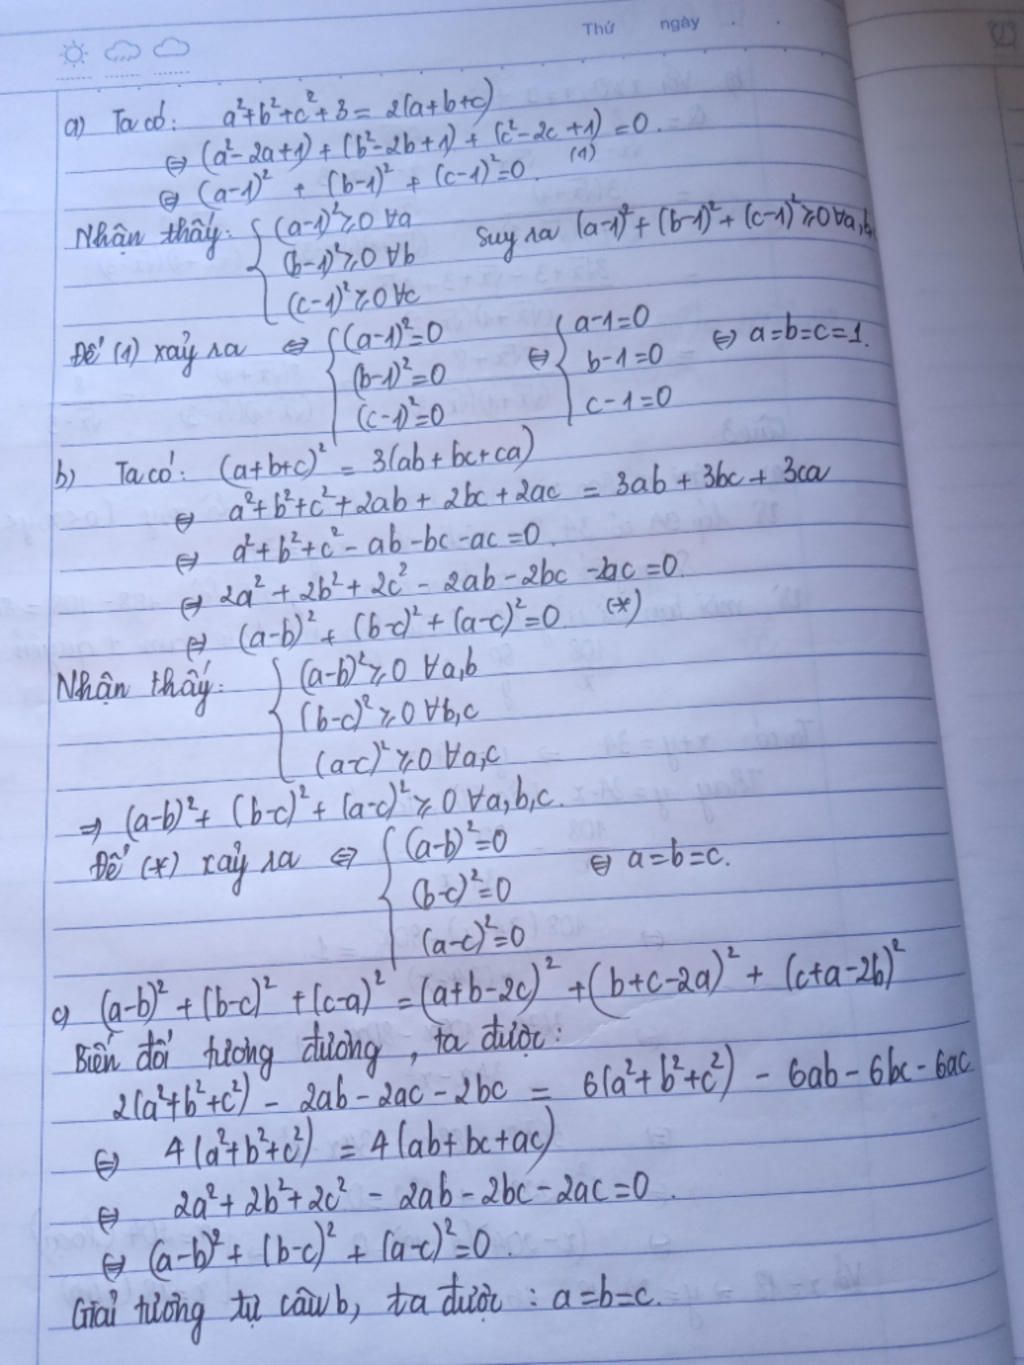 Thứ ngày . .
a) Ta có: a²+b²+c²+3 = 2(a+b+c)
⇔ (a²-2a+1) + (b²-2b+1) + (c²-2c+1) = 0.
⇔ (a-1)² + (b-1)² + (c-1)² = 0. (1)
Nhận thấy: { (a-1)² ≥ 0 ∀a Suy ra (a-1)² + (b-1)² + (c-1)² ≥ 0 ∀a,b
(b-1)² ≥ 0 ∀b
(c-1)² ≥ 0 ∀c
Để (1) xảy ra ⇔ { (a-1)²=0 ⇔ { a-1=0 ⇔ a=b=c=1.
(b-1)²=0 b-1=0
(c-1)²=0 c-1=0
b) Ta có: (a+b+c)² = 3(ab+bc+ca)
⇔ a²+b²+c²+2ab+2bc+2ac = 3ab+3bc+3ca
⇔ a²+b²+c²-ab-bc-ac=0.
⇔ 2a²+2b²+2c²-2ab-2bc-2ac=0.
⇔ (a-b)² + (b-c)² + (a-c)² = 0 (*)
Nhận thấy: { (a-b)² ≥ 0 ∀a,b
(b-c)² ≥ 0 ∀b,c
(a-c)² ≥ 0 ∀a,c
⇒ (a-b)² + (b-c)² + (a-c)² ≥ 0 ∀a,b,c.
Để (*) xảy ra ⇔ { (a-b)²=0 ⇔ a=b=c.
(b-c)²=0
(a-c)²=0
c) (a-b)² + (b-c)² + (c-a)² = (a+b-2c)² + (b+c-2a)² + (c+a-2b)²
Biến đổi tương đương, ta được:
2(a²+b²+c²) - 2ab-2ac-2bc = 6(a²+b²+c²) - 6ab-6bc-6ac
⇔ 4(a²+b²+c²) = 4(ab+bc+ac)
⇔ 2a²+2b²+2c² - 2ab-2bc-2ac=0.
⇔ (a-b)² + (b-c)² + (a-c)² = 0.
Giải tương tự câu b, ta được: a=b=c.